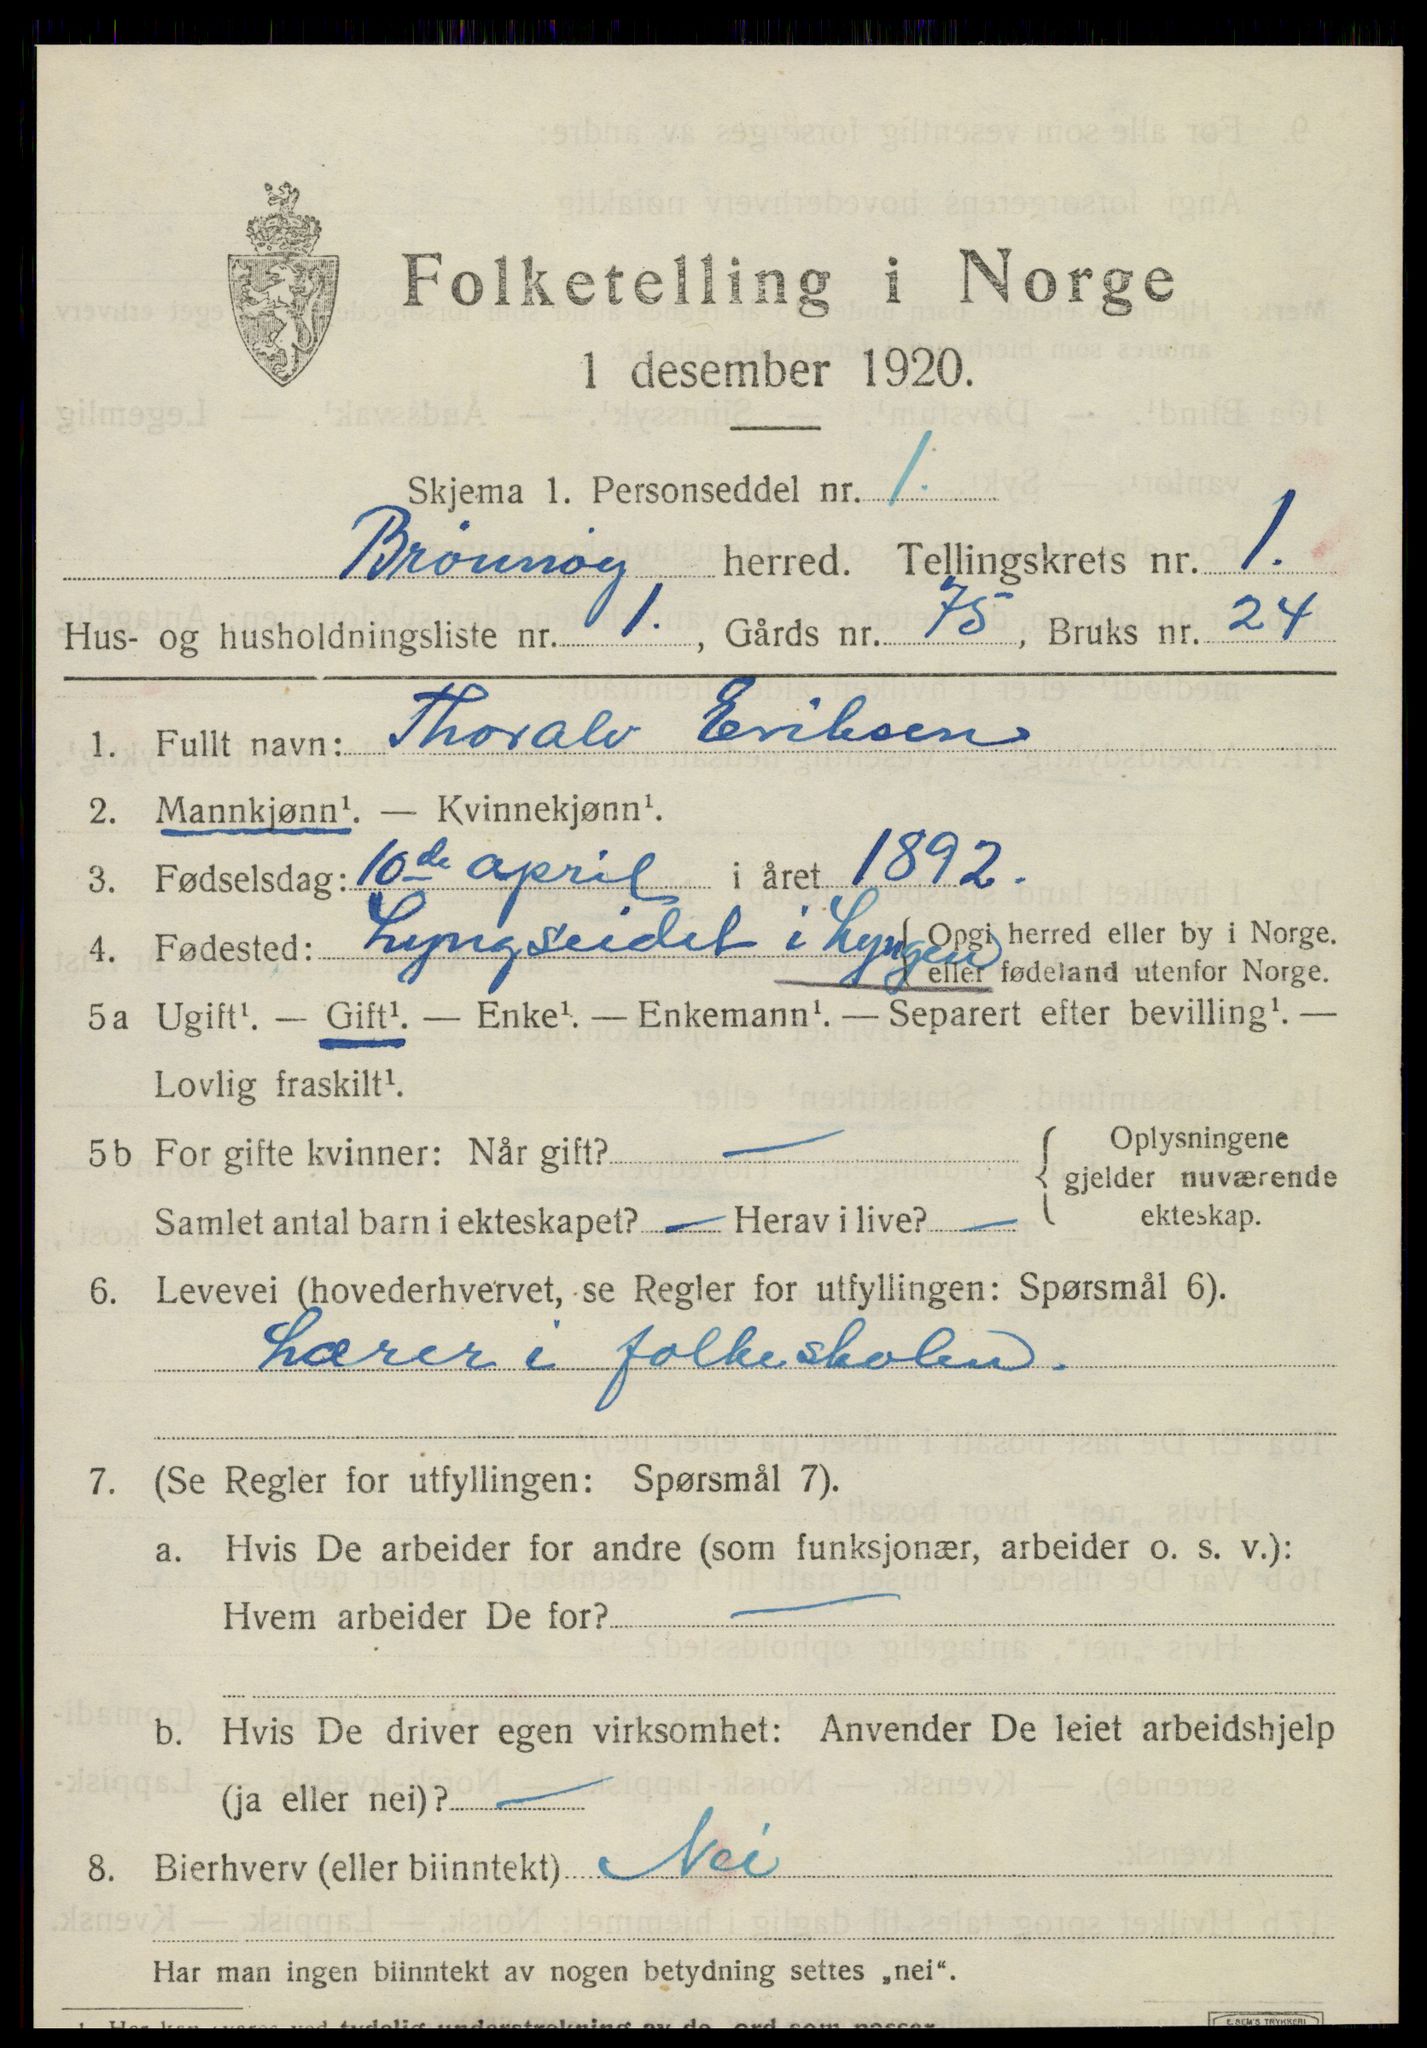 Folketelling i Norge
1 desember 1920.
Skjema 1. Personseddel nr. 1.
Brønnøy herred. Tellingskrets nr. 1.
Hus- og husholdningsliste nr. 1., Gårds nr. 75, Bruks nr. 24
1. Fullt navn: Thoralv Eriksen
2. Mannkjønn¹. — Kvinnekjønn¹.
3. Fødselsdag: 10de april i året 1892.
4. Fødested: Lyngseidet i Lyngen { Opgi herred eller by i Norge.
eller fødeland utenfor Norge.
5a Ugift¹. — Gift¹. — Enke¹. — Enkemann¹. — Separert efter bevilling¹. —
Lovlig fraskilt¹.
5b For gifte kvinner: Når gift? — { Oplysningene
gjelder nuværende
Samlet antal barn i ekteskapet? — Herav i live? — ekteskap.
6. Levevei (hovederhvervet, se Regler for utfyllingen: Spørsmål 6).
Lærer i folkeskolen.
7. (Se Regler for utfyllingen: Spørsmål 7).
a. Hvis De arbeider for andre (som funksjonær, arbeider o. s. v.):
Hvem arbeider De for? —
b. Hvis De driver egen virksomhet: Anvender De leiet arbeidshjelp
(ja eller nei)? —
8. Bierhverv (eller biinntekt) Nei
Har man ingen biinntekt av nogen betydning settes „nei“.